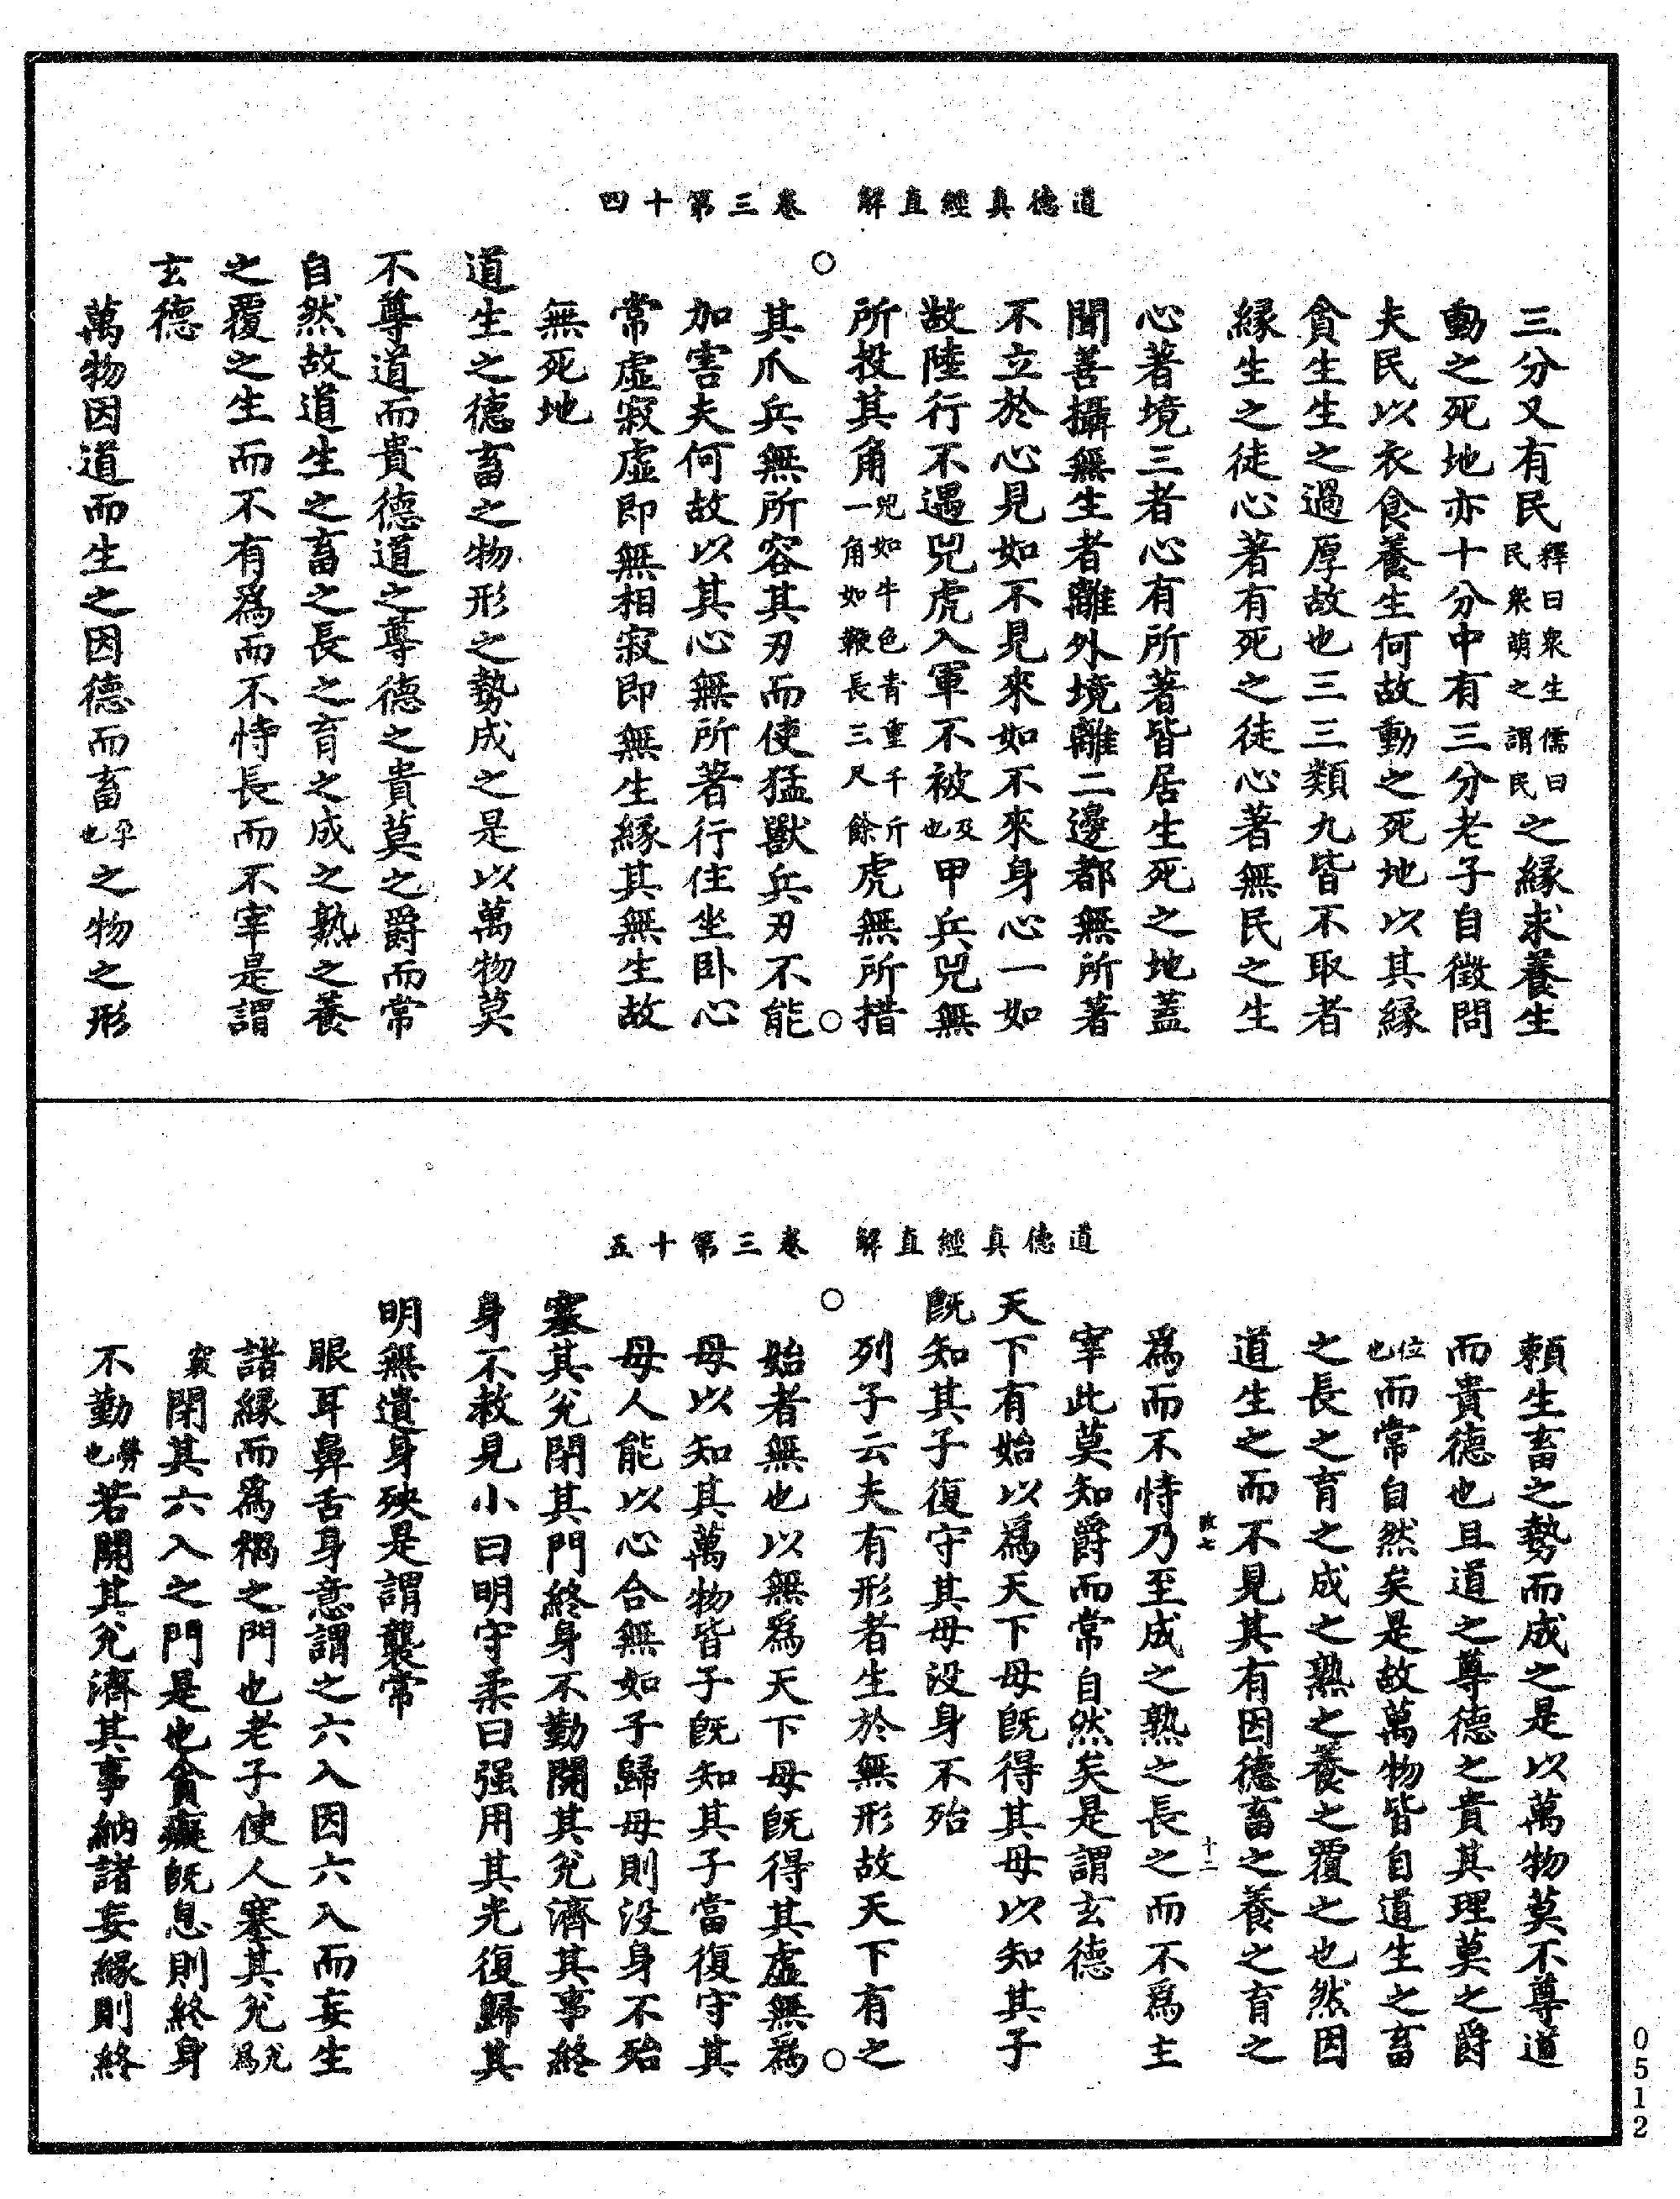 道德真經直解　卷三第十四
三分又有民釋曰眾生儒曰民衆萌之謂民之緣求養生
動之死地亦十分中有三分老子自徵問
夫民以衣食養生何故動之死地以其緣
貪生生之過厚故也三三類九皆不取者
緣生之徒心著有死之徒心著無民之生
心著境三者心有所著皆居生死之地蓋
聞善攝無生者離外境離二邊都無所著
不立於心見如不見來如不來身心一如
故陸行不遇兕虎入軍不被及也甲兵兕無
所投其角兕如牛色青重千斤一角如鞭長三尺餘虎無所措
其爪兵無所容其刃而使猛獸兵刃不能
加害夫何故以其心無所著行住坐卧心
常虛寂虛即無相寂即無生緣其無生故
無死地
道生之德畜之物形之勢成之是以萬物莫
不尊道而貴德道之尊德之貴莫之爵而常
自然故道生之畜之長之育之成之熟之養
之覆之生而不有為而不恃長而不宰是謂
玄德
萬物因道而生之因德而畜也之物之形
道德真經直解　卷三第十五
賴生畜之勢而成之是以萬物莫不尊道
而貴德也且道之尊德之貴其理莫之爵
位也而常自然矣是故萬物皆自道生之畜
之長之育之成之熟之養之覆之也然因
道生之而不見其有因德畜之養之育之
十二
為而不恃乃至成之熟之長之而不為主
宰此莫知爵而常自然矣是謂玄德
天下有始以為天下母既得其母以知其子
既知其子復守其母没身不殆
列子云夫有形者生於無形故天下有之
始者無也以無為天下母既得其虛無為
母以知其萬物皆子既知其子當復守其
母人能以心合無如子歸母則没身不殆
塞其兊閉其門終身不勤開其兊濟其事終
身不救見小曰明守柔曰强用其光復歸其
明無遺身殃是謂襲常
眼耳鼻舌身意謂之六入因六入而妄生
諸緣而為禍之門也老子使人塞其兊兊為
竅閉其六入之門是也貪癡既息則終身
不勤勞也若開其兊濟其事納諸妄緣則終
0512